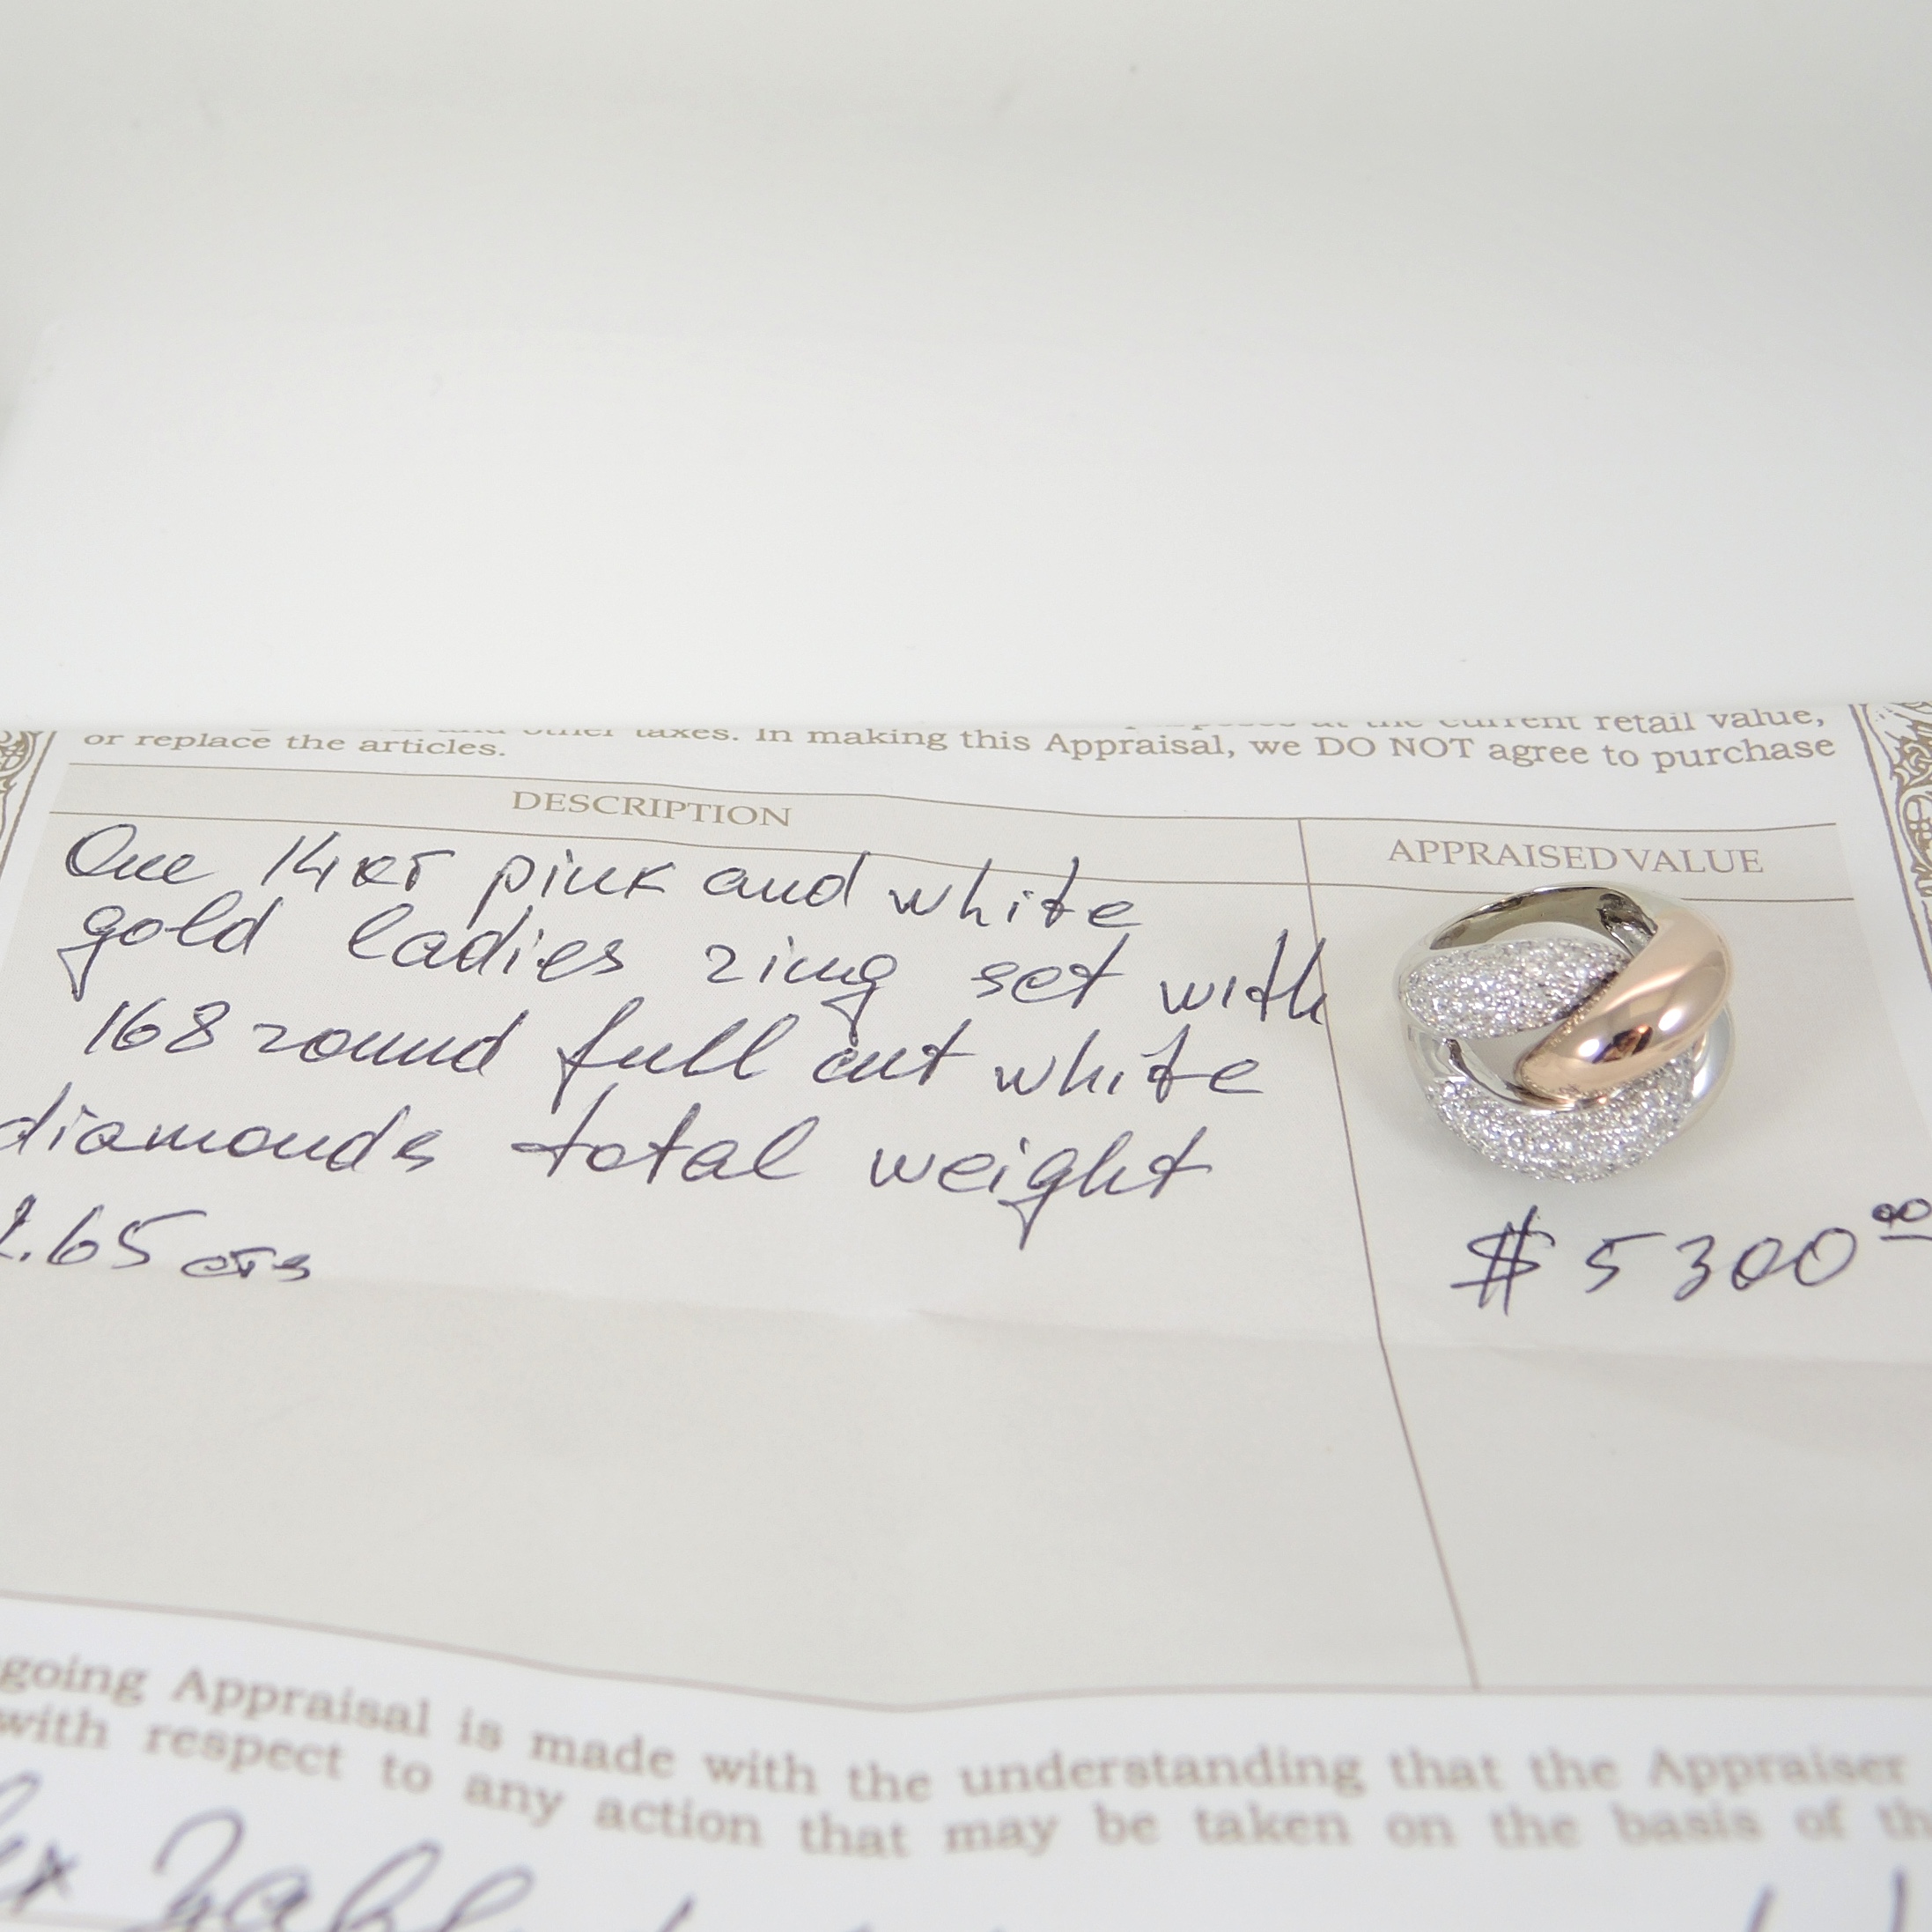 at the current retail value,
other taxes. In making this Appraisal, we DO NOT agree to purchase
or replace the articles.
DESCRIPTION
APPRAISED VALUE
One 14KT pink and white
gold ladies ring set with
168 round full cut white
diamonds total weight
.65 cts
$ 5300 00
going Appraisal is made with the understanding that the Appraiser
with respect to any action that may be taken on the basis of